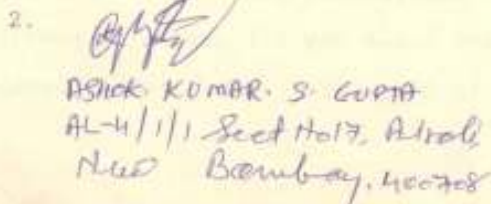 2.
ASHOK KUMAR. S. GUPTA
AL-4/1/1 Sect No17, Airoli,
New Bombay. 400708